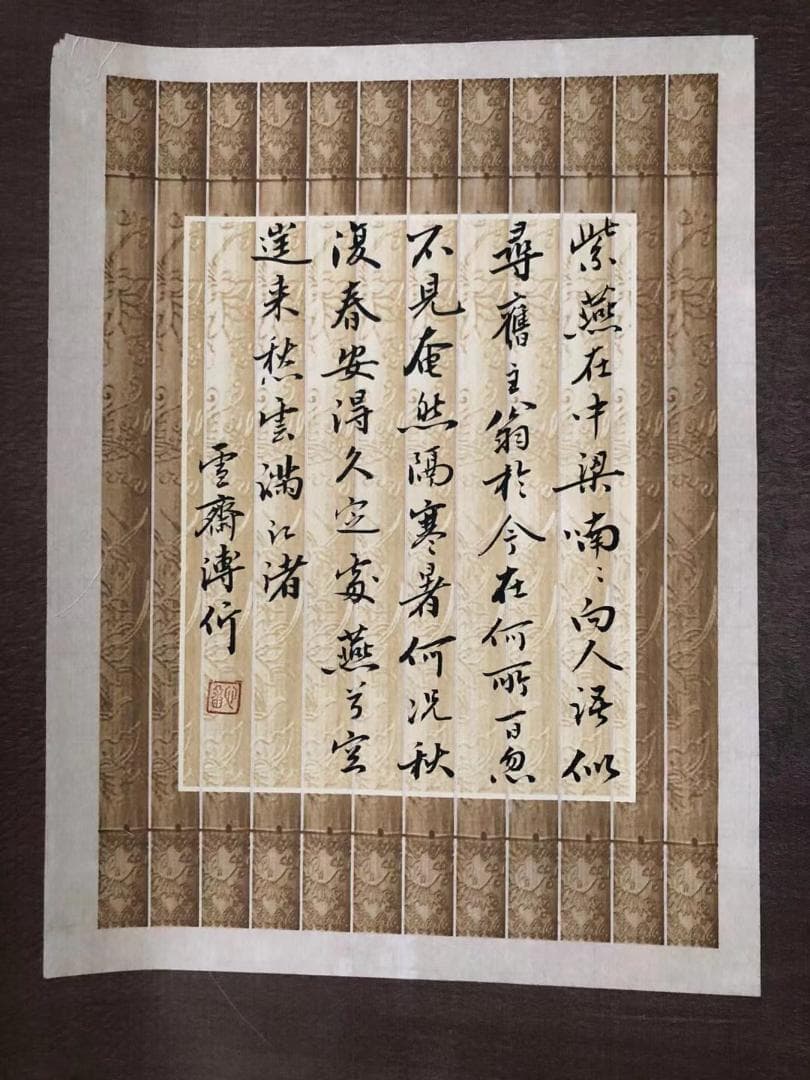 紫燕在中梁喃〻向人語似
尋舊主翁於今在何所一日忽
不見奄然隔寒暑何況秋
復春安得久定處燕兮空
来愁雲滿江渚
雪齋溥伒